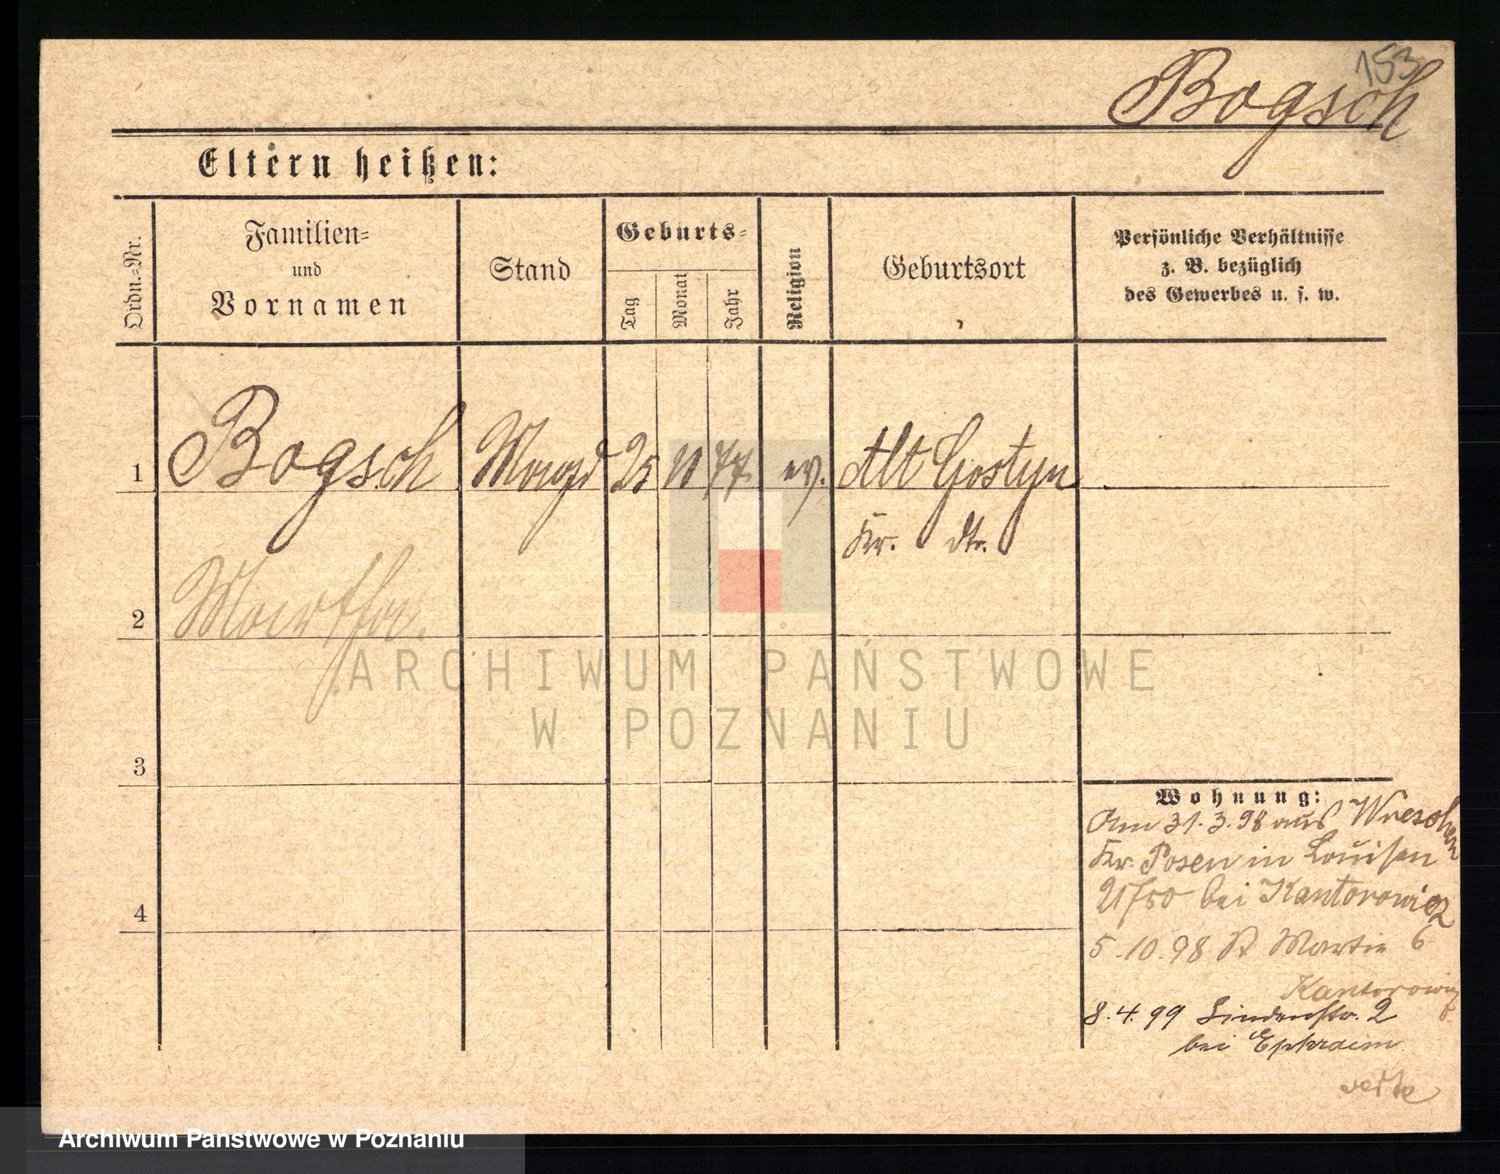 153
Bogsch
Eltern heißen:
Ordn.-Nr.
Familien-
und
Vornamen
Stand
Geburts-
Tag
Monat
Jahr
Religion
Geburtsort
Persönliche Verhältnisse
z. B. bezüglich
des Gewerbes u. s. w.
1 Bogsch Magd 25 11 77 ev. Alt Gostyn
Kr. dto.
2 Martha.
3
4
Wohnung:
Am 31.3.98 aus Wreschen
Kr. Posen in Louisen
bei Kantorowicz
5.10.98 St Martin 6
Kantorowicz
8.4.99 Lindenstr. 2
bei Ephraim
ARCHIWUM PAŃSTWOWE
W POZNANIU
Archiwum Państwowe w Poznaniu